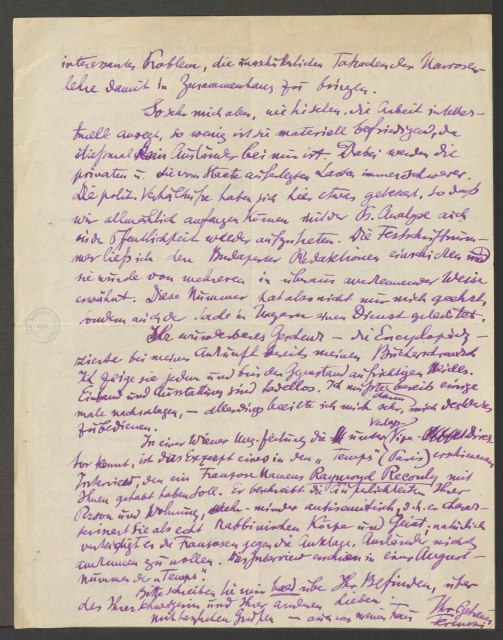 interessantes Problem, die unerschütterlichen Tatsachen der Neurosen-
lehre damit in Zusammenhang zu bringen.
So sehr mich aber, wie Sie sehen, die Arbeit intellek-
tuell anregt, so wenig ist sie materiell befriedigend, da
diesmal kein Ausländer bei mir ist. Dabei werden die
privaten u. die vom Staate auferlegten Lasten immer schwerer.
Die polit. Verhältnisse haben sich hier etwas gebessert, so daß
wir allmählich anfangen können mit der Ps. Analyse auch
in der Öffentlichkeit wieder aufzutreten. Die Festschriftnum-
mer ließ ich den Budapester Redaktionen einschicken und
sie wurde von mehreren in überaus anerkennender Weise
erwähnt. Diese Nummer hat also nicht nur mich geehrt,
sondern auch der Sache in Ungarn einen Dienst geleistet.
Ihr wunderbares Geschenk – die Encyclopädie –
zierte bei meiner Ankunft bereits meinen Bücherschrank
Ich zeige sie jedem und bin der Gegenstand aufrichtigen Neides.
Einband und Ausstattung sind tadellos. Ich mußte bereits einige
male nachschlagen, – allerdings beeilte ich mich dann sehr, mich
zu bedienen.
In einer Wiener Ung. Zeitung, die unser Verlags Vize-Direk
tor kennt, ist das Exzerpt eines in den „Temps" (Paris) erschienenen
Interviews, den ein Franzose Namens Raymond Recouly mit
Ihnen gehabt haben soll. Er beschreibt die Räumlichkeiten Ihrer
Person und Wohnung, minder antisemitisch, d. h. er charak-
terisiert Sie als echt Rabbinischen Körper und Geist; natürlich
verteidigt er die Franzosen gegen die Anklage, Ausländer nicht
anerkennen zu wollen. Das Interview erschien in einer August-
nummer der „Temps".
Bitte schreiben Sie mir bald über Ihr Befinden, über
das Ihrer Schwägerin und Ihrer anderen Lieben.
Mit herzlichen Grüßen – auch von meiner Frau Ihr
Ferenczi